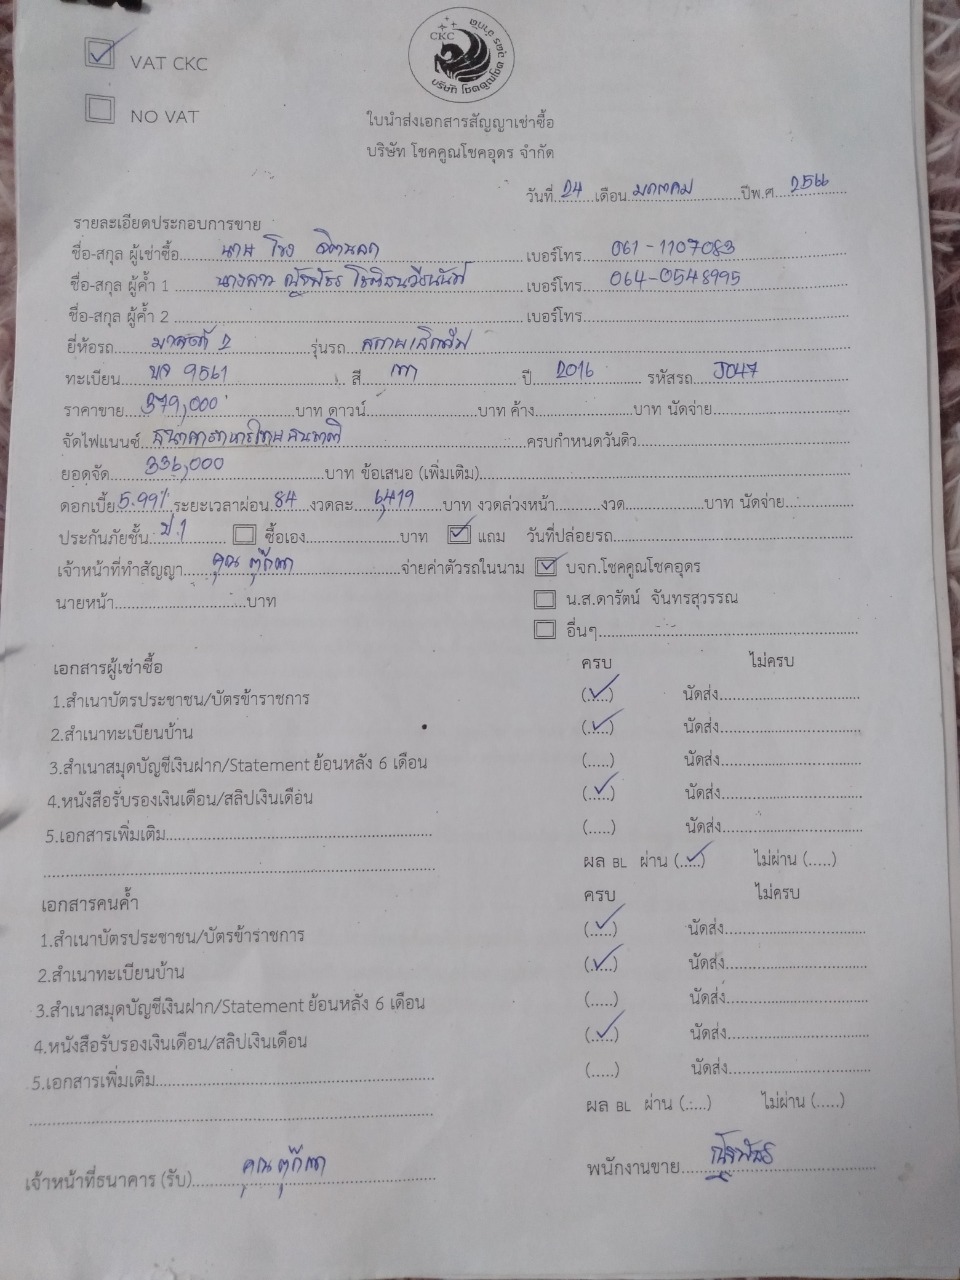 VAT CKC
NO VAT
CKC
บริษัท โชคคูณโชคอุดร จำกัด
ใบนำส่งเอกสารสัญญาเช่าซื้อ
บริษัท โชคคูณโชคอุดร จำกัด
วันที่ 24 เดือน มกราคม ปีพ.ศ. 2566
รายละเอียดประกอบการขาย
ชื่อ-สกุล ผู้เช่าซื้อ นาย เบอร์โทร 061-1107083
ชื่อ-สกุล ผู้ค้ำ 1 นางสาว ณัฐพัชร เบอร์โทร 064-0548995
ชื่อ-สกุล ผู้ค้ำ 2 เบอร์โทร
ยี่ห้อรถ มาสด้า 2 รุ่นรถ
ทะเบียน 9561 สี เทา ปี 2016 รหัสรถ J047
ราคาขาย 379,000 บาท ดาวน์ บาท ค้าง บาท นัดจ่าย
จัดไฟแนนซ์ ธนาคารทหารไทยธนชาต ครบกำหนดวันดิว
ยอดจัด 336,000 บาท ข้อเสนอ (เพิ่มเติม)
ดอกเบี้ย 5.99% ระยะเวลาผ่อน 84 งวดละ 6,419 บาท งวดล่วงหน้า งวด บาท นัดจ่าย
ประกันภัยชั้น ป.1 ซื้อเอง บาท แถม วันที่ปล่อยรถ
เจ้าหน้าที่ทำสัญญา คุณ ตุ๊กตา จ่ายค่าตัวรถในนาม บจก.โชคคูณโชคอุดร
นายหน้า บาท น.ส.ดารัตน์ จันทรสุวรรณ
อื่นๆ
เอกสารผู้เช่าซื้อ ครบ ไม่ครบ
1.สำเนาบัตรประชาชน/บัตรข้าราชการ (.....) นัดส่ง
2.สำเนาทะเบียนบ้าน (.....) นัดส่ง
3.สำเนาสมุดบัญชีเงินฝาก/Statement ย้อนหลัง 6 เดือน (.....) นัดส่ง
4.หนังสือรับรองเงินเดือน/สลิปเงินเดือน (.....) นัดส่ง
5.เอกสารเพิ่มเติม (.....) นัดส่ง
ผล BL ผ่าน (.....) ไม่ผ่าน (.....)
เอกสารคนค้ำ ครบ ไม่ครบ
1.สำเนาบัตรประชาชน/บัตรข้าราชการ (.....) นัดส่ง
2.สำเนาทะเบียนบ้าน (.....) นัดส่ง
3.สำเนาสมุดบัญชีเงินฝาก/Statement ย้อนหลัง 6 เดือน (.....) นัดส่ง
4.หนังสือรับรองเงินเดือน/สลิปเงินเดือน (.....) นัดส่ง
5.เอกสารเพิ่มเติม (.....) นัดส่ง
ผล BL ผ่าน (.....) ไม่ผ่าน (.....)
เจ้าหน้าที่ธนาคาร (รับ) คุณ ตุ๊กตา พนักงานขาย ณัฐพัชร